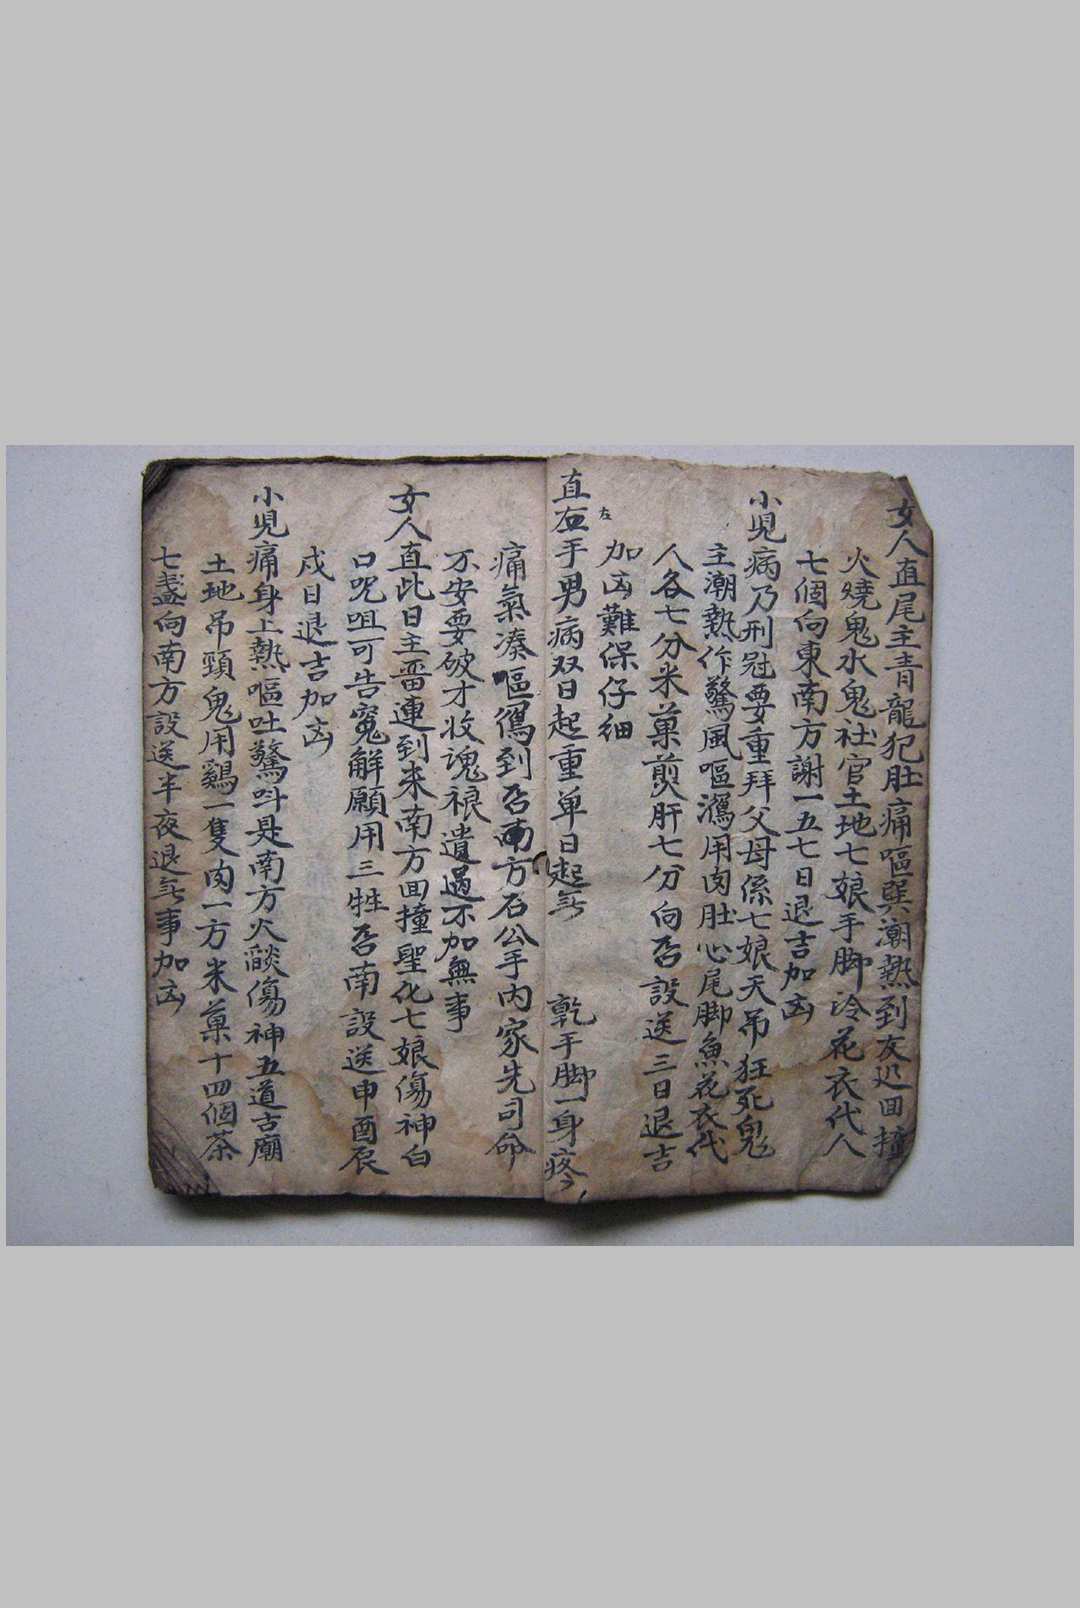 女人直尾主青龍犯肚痛嘔巽潮熱到友廵回撞
火燒鬼水鬼社官土地七娘手脚冷花衣代人
七個向東南方謝一五七日退吉加凶
小児病乃刑尅要重拜父母係七娘天吊狂死鬼
主潮熱作驚風嘔瀉用肉肚心尾脚魚花衣代
人各七分米菓煎肝七分向西設送三日退吉
加凶難保仔細
左
直右手男病双日起重单日起輕 乾手脚一身疼
痛氣凑嘔瀉到西南方石公手内家先司命
不安要破才收魂禳遣過不加無事
女人直此日主番連到来南方回撞聖化七娘傷神白
口咒咀可告竃觧願用三牲西南設送申酉辰
戌日退吉加凶
小児痛身上熱嘔吐驚呌是南方火燄傷神五道古廟
土地吊頸鬼用鷄一隻肉一方米菓十四個茶
七盞向南方設送半夜退無事加凶